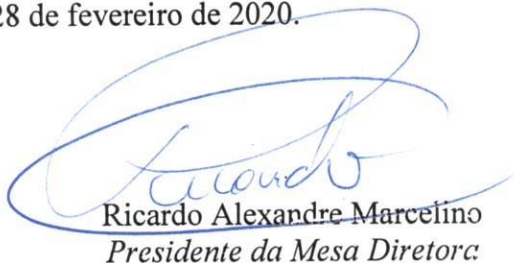 28 de fevereiro de 2020.
Ricardo
Ricardo Alexandre Marcelino
Presidente da Mesa Diretora